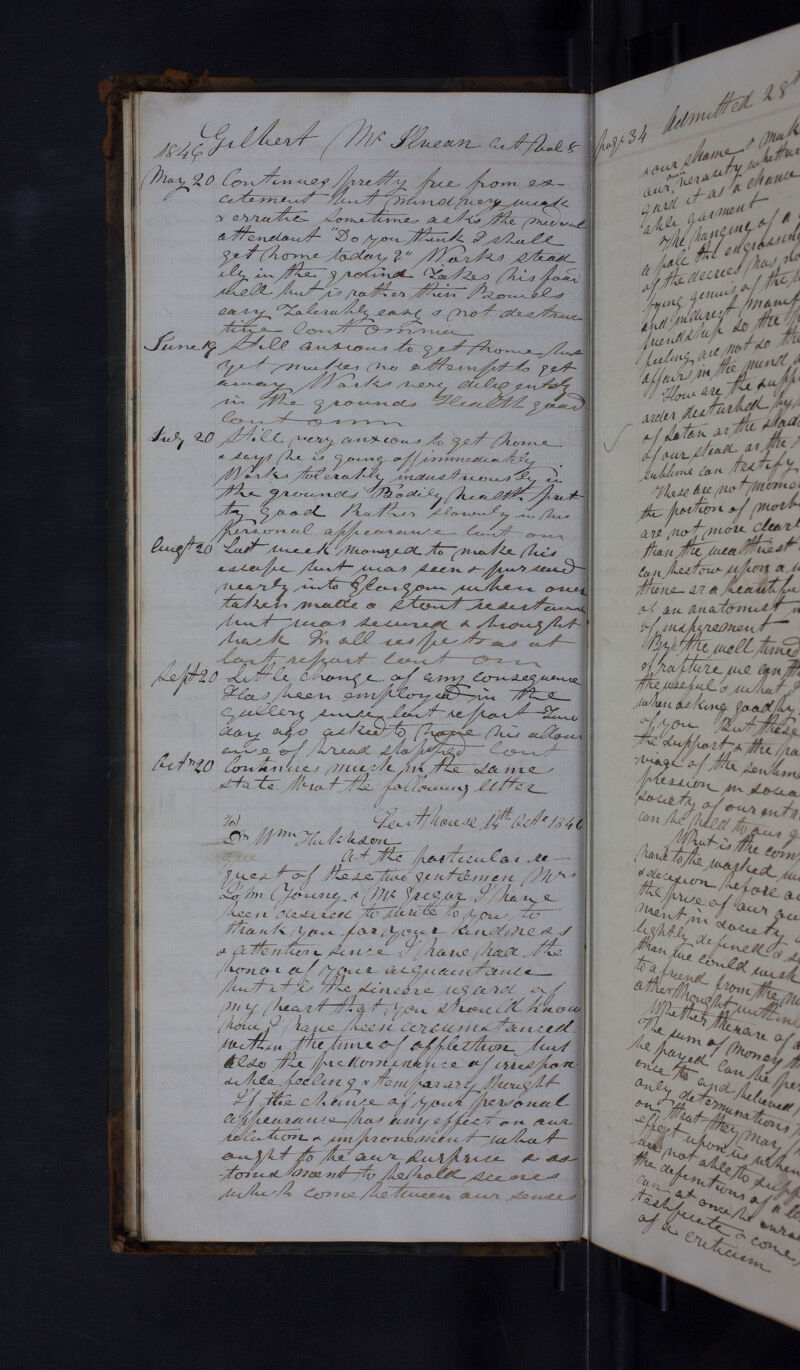 1846 Gilbert Mc Ilvean aet Vol 8
May 20 Continues pretty free from ex-
citement but mind very weak
& erratic Sometimes asks the medical
attendant "Do you think I shall
get home today?" Works stead
ily in the ground Takes his food
well but is rather thin Bowels
easy Tolerably easy & not destruc
tive Cont omnia
June 19 Still anxious to get home but
yet makes no attempt to get
away Works very diligently
in the grounds Health good
Cont omn
July 20 Still very anxious to get home
& says he is going off immediately
Works tolerably industriously in
the grounds Bodily health pret
ty good Rather slovenly in his
personal appearance Cont om
Augt 20 Last week managed to make his
escape but was seen & pursued
nearly into Glasgow when over
taken made a stout resistance
but was secured & brought
back In all respects as at
last report Cont om
Sept 20 Little change of any consequence
Has been employed in the
gallery since last report
day ago asked to have his allow
ance of bread stopped Cont
Octr 20 Continues much in the same
state Wrot the following letter
14th Octr 1846
To
Dr Wm Hutcheson
At the particular re-
quest of these two gentlemen Mrs
John Young & Mc Gregor I have
been desired to write to you to
thank you for your kindness
& attention since I have had the
honor of your acquaintance
but it is the sincere regard of
my heart that you should know
how I have been circumstanced
within the time of affliction but
also the predominence of irrespon
sible feeling & temporary thought
If the chance of your personal
appearance has any effect on our
relation & improvement what
ought to be our surprise & as
tonishment to behold scenes
which come between our senses
page 34 Admitted 28th
& our shame & mak
our veracity whether
gard it as a chance
able garment
The hanging of a
a pole the engrossing
of the decrees has no
lying genius of the
and indirect manif
friendship so the
feeling are not so the
affairs in the mind
How are the supp
order disturbed by
of Satan or the shad
of our stead or the
sublime can testify
These are not mome
the portion of morb
are not more clearl
than the wealthiest
can bestow upon a
throne or a beautifu
of an anatomist
of inspirement
By the well timed
of rapture we can
the useful & what
when asking good by
of you But these
the support & the pa
riage of the sentim
pression in socia
society of our enta
can be held to our
What is the com
have to be washed
& derision before
the prise of our ou
ment in society
lightly defined & s
than we could wish
to a friend from the
other thought
Whether there are of
The sum of money
be payed can be per
once to and believed
only determinations
on that they may
effect upon us when
are not able to supp
the definitions of a
can at once be
testificate & come
of a criticism